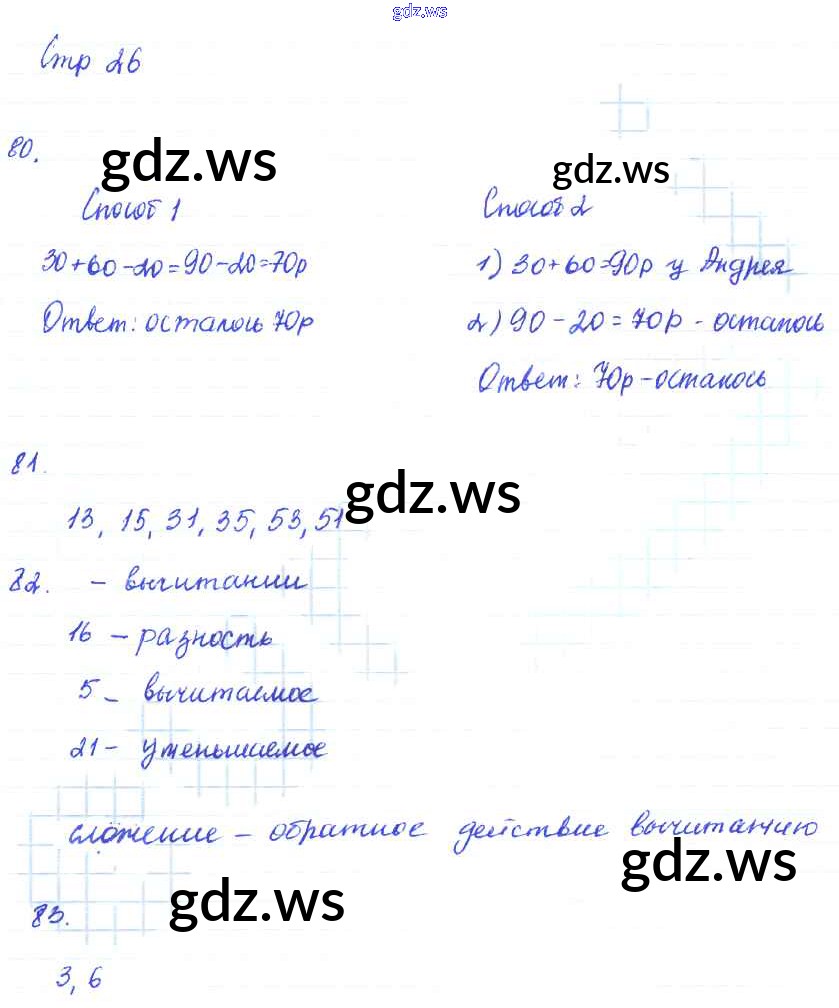 gdz.ws
Стр 26
80.
gdz.ws
gdz.ws
Способ 1
30+60-20=90-20=70р
Ответ: осталось 70р
Способ 2
1) 30+60=90р у Андрея
2) 90-20=70р - осталось
Ответ: 70р-осталось
81.
gdz.ws
13, 15, 31, 35, 53, 51
82. - вычитании
16 - разность
5 - вычитаемое
21 - уменьшаемое
сложение - обратное действие вычитанию
gdz.ws
gdz.ws
83.
3, 6